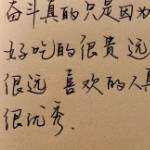 奋斗真的只是因为
好吃的很贵 远
很远 喜欢的人真
很优秀.